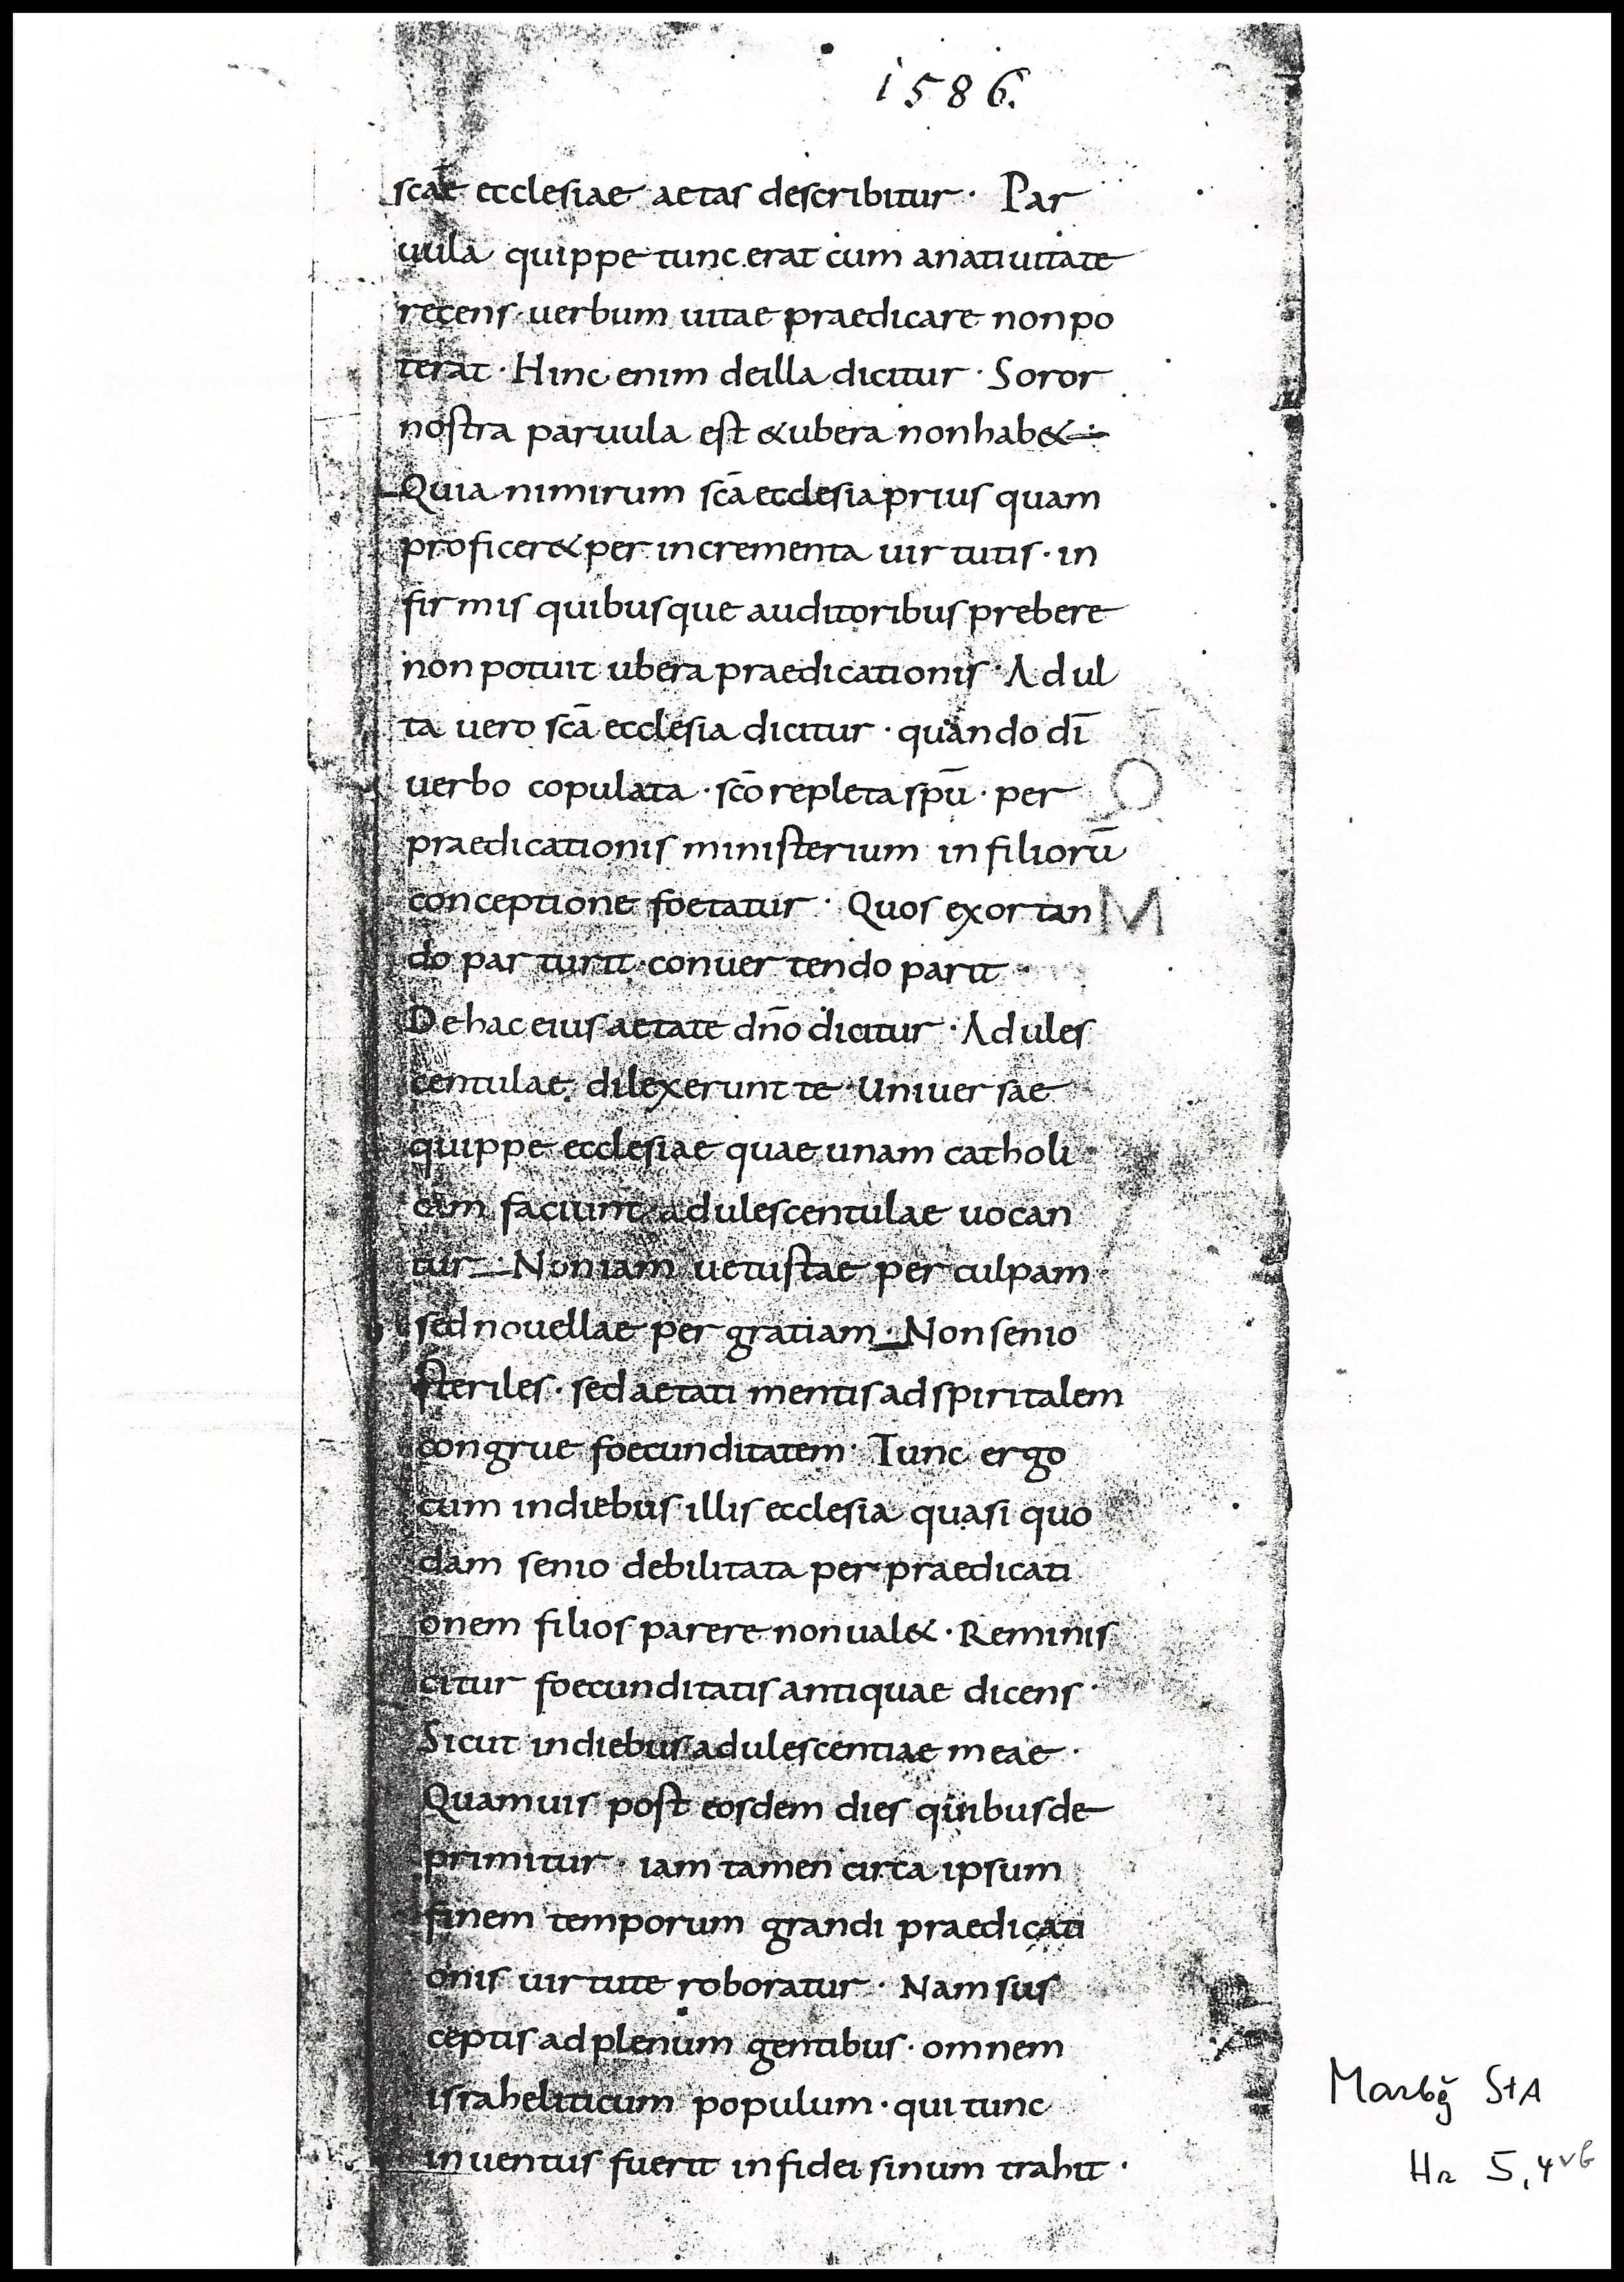 1586.
scae ecclesiae aetas describitur · Par
uula quippe tunc erat cum anatiuitate
recens uerbum uitae praedicare nonpo
terat · Hinc enim deilla dicitur · Soror
nostra paruula est &ubera nonhab&
Quia nimirum scā ecclesia prius quam
proficer& per incrementa uirtutis · in
firmis quibusque auditoribus prebere
non potuit ubera praedicationis · Adul
ta uero scā ecclesia dicitur · quando dī
uerbo copulata · scō repleta spū · per
praedicationis ministerium in filiorū
conceptione foetatur · Quos exortan
M
do parturit · conuertendo parit ·
Dehac eius aetate dn̄o dicitur · Adules
centulae dilexerunt te · Uniuersae
quippe ecclesiae quae unam catholi
cam faciunt adulescentulae uocan
tur Noniam uetustae per culpam ·
sed nouellae per gratiam · Nonsenio
steriles · sed aetati mentis ad spiritalem
congrue foecunditatem · Tunc ergo
cum indiebus illis ecclesia quasi quo
dam senio debilitata per praedicati
onem filios parere nonual& · Reminis
citur foecunditatis antiquae dicens ·
Sicut indiebus adulescentiae meae ·
Quamuis post eosdem dies quibus de
primitur · iam tamen circa ipsum
finem temporum grandi praedicati
onis uirtute roboratur · Nam sus
ceptis ad plenum gentibus · omnem
israheliticum populum · qui tunc
inuentus fuerit infidei sinum trahit ·
Marbg StA
Hr 5,4vb